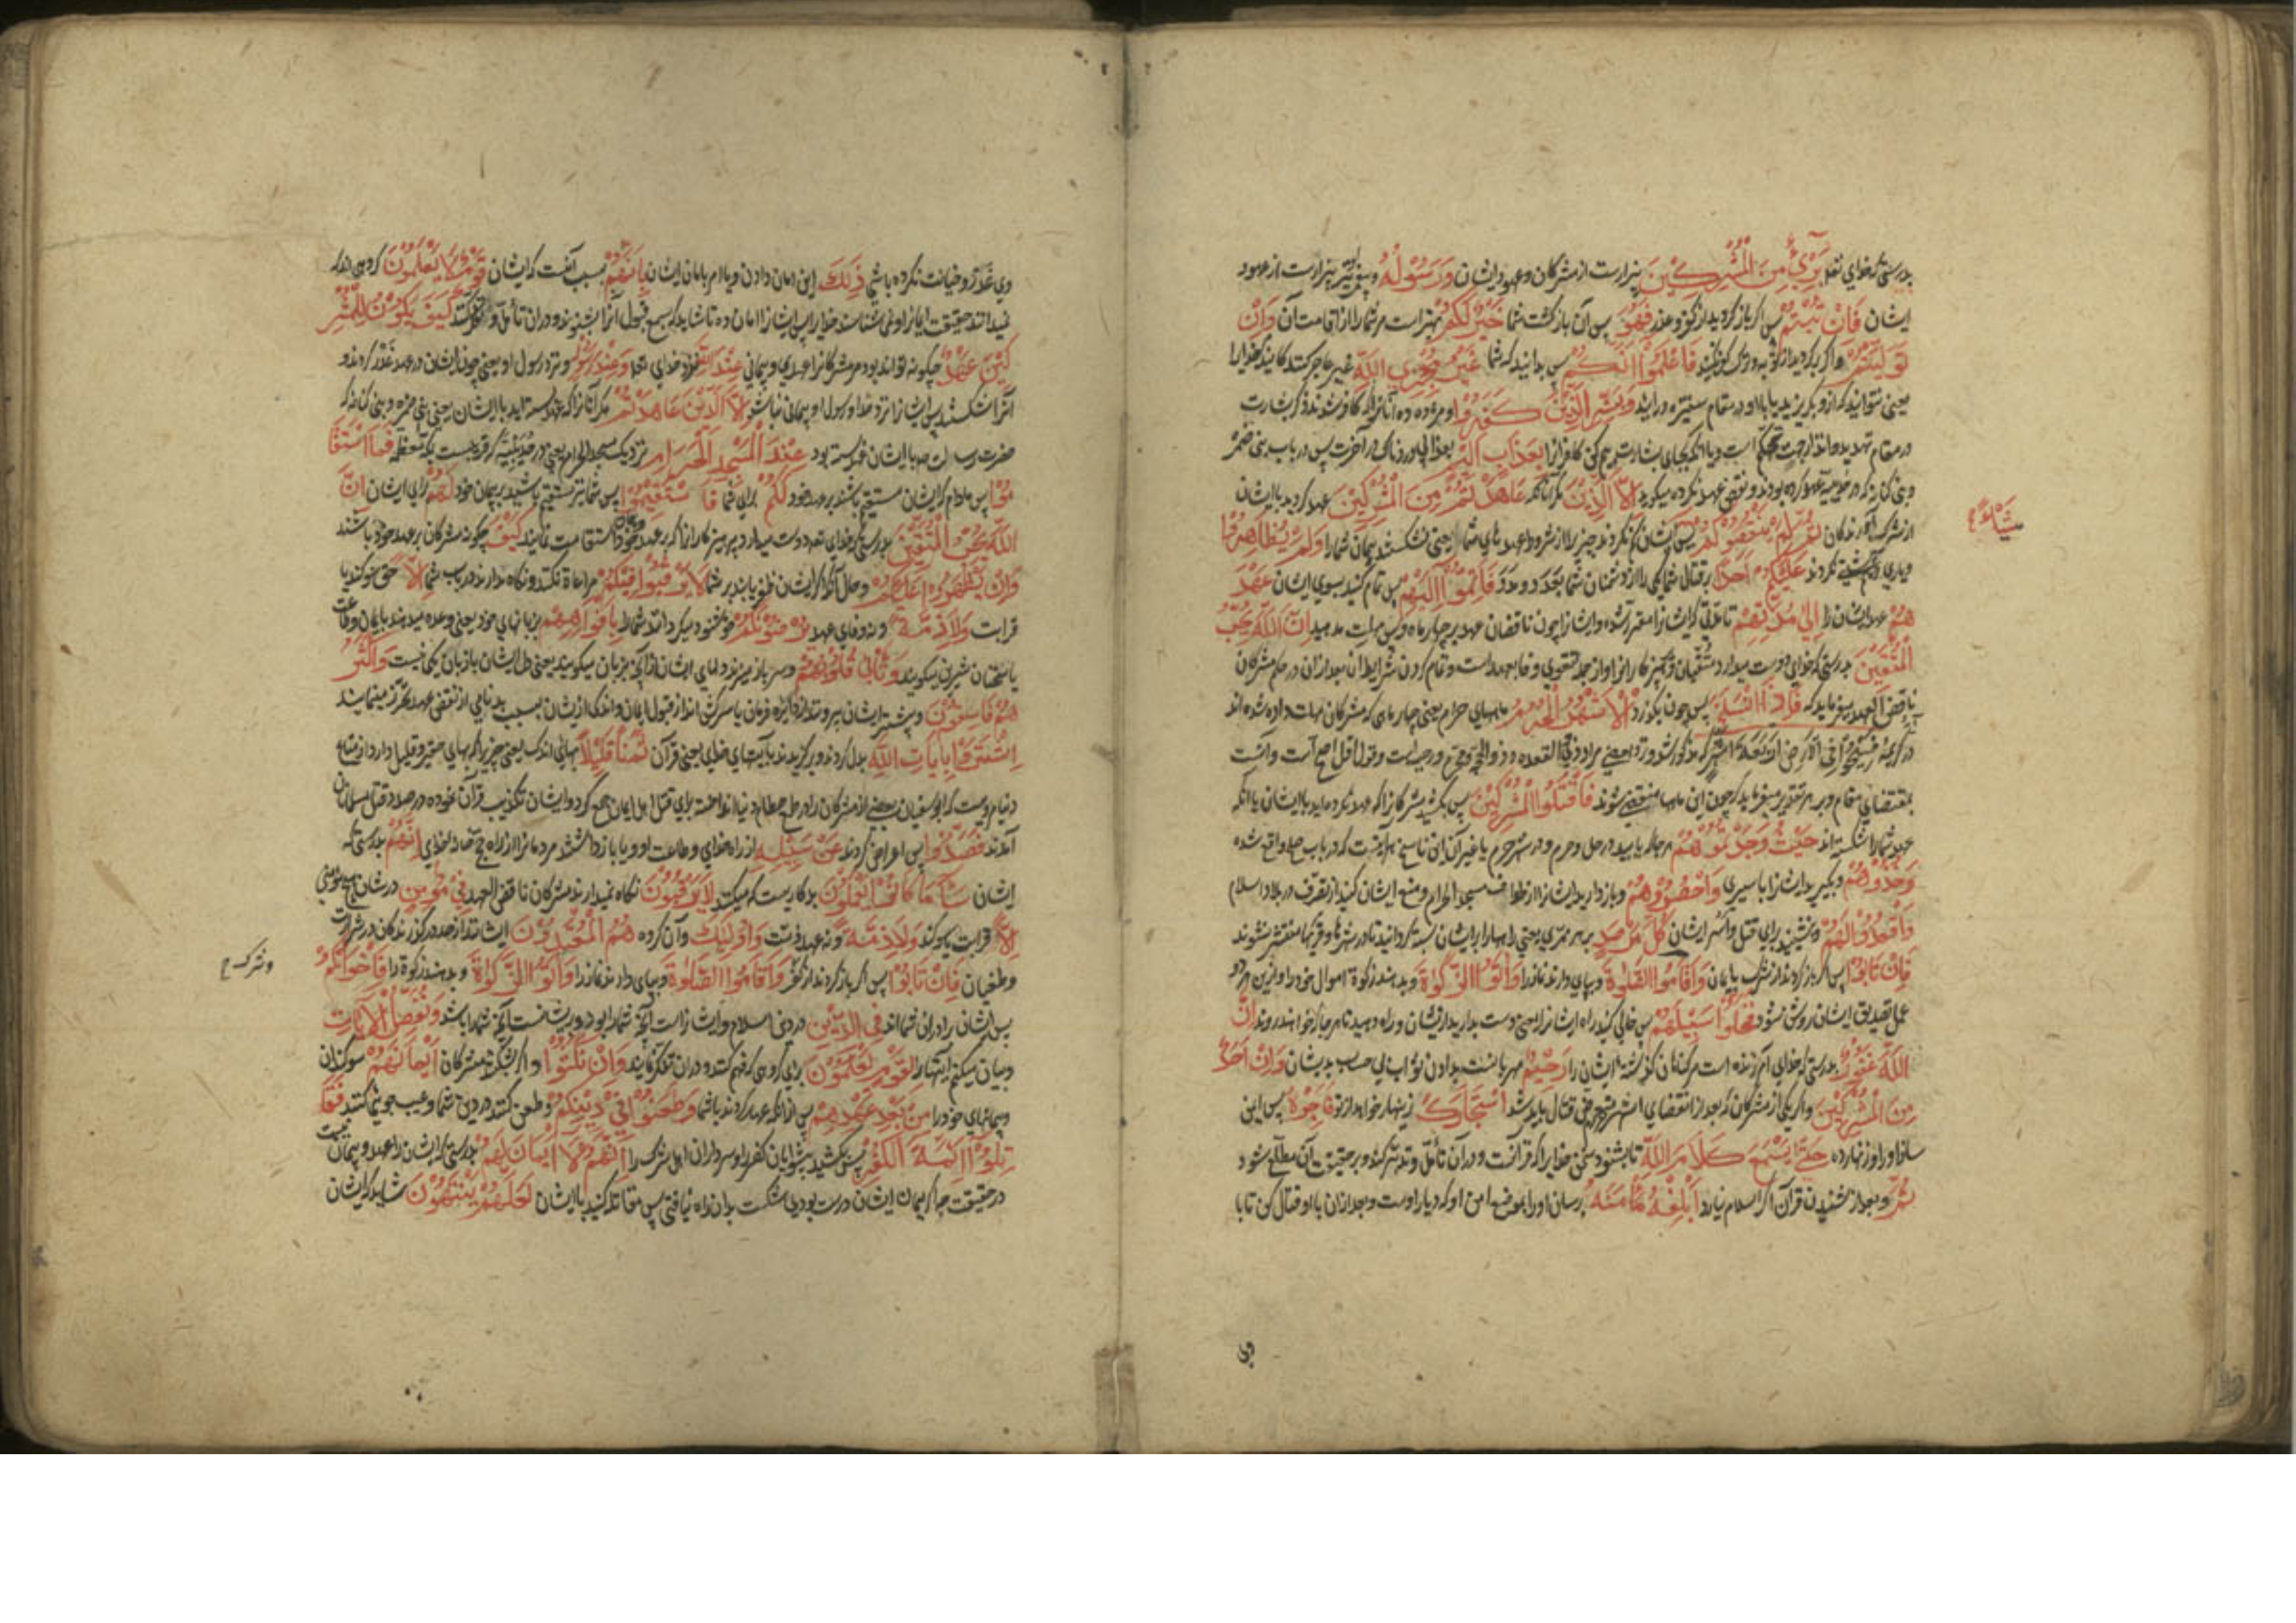 بدرستی که خدای تعا بَرِیءٌ مِنَ الْمُشْرِكِینَ بیزارست از مشرکان و عهود ایشان وَرَسُولُهُ و پیغمبر نیز بیزارست از عهود
ایشان فَاِنْ تُبْتُمْ پس اگر باز گردید از کفر و غدر فَهُوَ پس آن بازگشت شما خَیْرٌ لَكُمْ بهتر است مر شما را از اقامت آن وَاِنْ
تَوَلَّیْتُمْ و اگر برگردید از توبه و ترک کفر نکنید فَاعْلَمُوا اَنَّكُمْ پس بدانید که شما غَیْرُ مُعْجِزِی اللّٰهِ غیر عاجز کنندگانید خدایرا
یعنی نتوانید که ازو بگریزید یا با او در مقام ستیزه درآیید وَبَشِّرِ الَّذِینَ كَفَرُوا و مژده ده آنانرا که کافر شدند ذکر بشارت
در مقام تهدید و انذار جهت تهکم است و یا آنکه بجای بشارت بیم کن کافرانرا بِعَذَابٍ اَلِیمٍ بعذابی دردناک در آخرت پس در باب بنی ضمره
و بنی کنانه که در حدیبیه عهد کرده بودند و نقض عهد نکرده میگوید اِلَّا الَّذِینَ مگر آنانکه عَاهَدْتُمْ مِنَ الْمُشْرِكِینَ عهد کردید با ایشان
از شرک آرندگان ثُمَّ لَمْ یَنْقُصُوكُمْ پس ایشان کم نکردند چیزیرا از شروط عهدهای شما یعنی نشکستند پیمان شما را وَلَمْ یُظَاهِرُوا
شَیْئًا
و یاری و هم پشتی نکردند عَلَیْكُمْ اَحَدًا بر قتال شما یکی را از دشمنان شما بعدد و مدد فَاَتِمُّوا اِلَیْهِمْ پس تمام کنید بسوی ایشان عَهْدَ
هُمْ عهد ایشان را اِلٰی مُدَّتِهِمْ تا مدتی که ایشانرا مقرر شده و ایشانرا چون ناقضان عهد بر چهار ماه مهلت مدهید اِنَّ اللّٰهَ یُحِبُّ
الْمُتَّقِینَ بدرستی که خدای دوست میدارد متقیان و پرهیزکارانرا و از جمله تقوی وفا بعهد است و تمام کردن شرایط آن بعد از آن در حکم مشرکان
ناقض العهد میفرماید که فَاِذَا انْسَلَخَ پس چون بگذرد الْاَشْهُرُ الْحُرُمُ ماههای حرام یعنی چهار ماهی که مشرکان مهلت داده شده اند
در کریمه فَسِیحُوا فِی الْاَرْضِ اَرْبَعَةَ اَشْهُرٍ که مذکور شد و نزد بعضی مراد ذی القعده و ذوالحجه و محرم و رجب است و قول اول اصح است
بمقتضای مقام و بر هر تقدیر میفرماید که چون این ماهها منقضی شوند فَاقْتُلُوا الْمُشْرِكِینَ پس بکشید مشرکانرا که عهد نکرده اید با ایشان یا آنکه
عهد شما را شکسته اند حَیْثُ وَجَدْتُمُوهُمْ هر جا که یابید در حل و حرم و در شهر حرم یا غیر آن
وَخُذُوهُمْ و بگیرید ایشانرا باسیری وَاحْصُرُوهُمْ و بازدارید ایشانرا از طواف مسجد الحرام و منع ایشان کنید از تصرف در بلاد اسلام
وَاقْعُدُوا لَهُمْ و بنشینید برای قتل و اسر ایشان كُلَّ مَرْصَدٍ بر هر ممری یعنی راهها را بر ایشان بسته گردانید تا در شهرها و قریها منتشر نشوند
فَاِنْ تَابُوا پس اگر باز گردند از شرک بایمان وَاَقَامُوا الصَّلٰوةَ و بپای دارند نماز را وَاٰتَوُا الزَّكٰوةَ و بدهند زکوة اموال خود را و ازین هر دو
عمل تصدیق ایشان روشن شود فَخَلُّوا سَبِیلَهُمْ پس خالی کنید راه ایشانرا یعنی دست بدارید از ایشان و راه دهید تا هر جا که خواهند روند اِنَّ
اللّٰهَ غَفُورٌ بدرستی که خدای آمرزنده است مر گناهان گذشته ایشان را رَحِیمٌ مهربانست بدادن ثواب بی حساب بدیشان وَاِنْ اَحَدٌ
مِنَ الْمُشْرِكِینَ و اگر یکی از مشرکان که بعد از انقضای اشهر حرم قتال باید شد اسْتَجَارَكَ زینهار خواهد از تو فَاَجِرْهُ پس ایمن
ساز او را و زنهار ده حَتّٰی یَسْمَعَ كَلَامَ اللّٰهِ تا بشنود سخن خدایرا که قرآنست و در آن تأمل و تدبر کند و بر حقیقت آن مطلع شود
ثُمَّ و بعد از شنیدن قرآن اگر اسلام نیارد اَبْلِغْهُ مَأْمَنَهُ برسان او را بموضع امن او که دیار اوست و بعد از آن با او قتال کن تا با
وی
وی غدر و خیانت نکرده باشی ذٰلِكَ این امان دادن و یا امر بامان ایشان بِاَنَّهُمْ بسبب آنست که ایشان قَوْمٌ لَا یَعْلَمُونَ گروهی اند که
نمیدانند حقیقت ایمانرا و نمی شناسند خدایرا پس ایشانرا امان ده تا شاید که بسمع قبول آنرا بشنوند و در آن تأمل و تفکر کنند كَیْفَ یَكُونُ لِلْمُشْرِ
كِینَ عَهْدٌ چگونه تواند بود مر مشرکانرا عهدی و پیمانی عِنْدَ اللّٰهِ نزد خدای تعا وَعِنْدَ رَسُولِهِ و نزد رسول او یعنی چون ایشان در عهد غدر کردند و
آنرا شکستند پس ایشانرا نزد خدا و رسول او پیمانی نباشد اِلَّا الَّذِینَ عَاهَدْتُمْ مگر آنانرا که عهد بسته اید با ایشان یعنی بنی ضمره و بنی کنانه که
حضرت رسالت صه با ایشان عهد بسته بود عِنْدَ الْمَسْجِدِ الْحَرَامِ نزدیک مسجد الحرام یعنی در حدیبیه که قریه ایست بمکه معظمه فَمَا اسْتَقَا
مُوا پس مادام که ایشان مستقیم باشند بر عهد خود لَكُمْ برای شما فَاسْتَقِیمُوا پس شما نیز مستقیم باشید بر پیمان خود لَهُمْ برای ایشان اِنَّ
اللّٰهَ یُحِبُّ الْمُتَّقِینَ بدرستی که خدای تعا دوست میدارد پرهیزکارانرا که بر عهد خود استقامت نمایند كَیْفَ چگونه مشرکان بر عهد خود باشند
وَاِنْ یَظْهَرُوا عَلَیْكُمْ و حال آنکه اگر ایشان ظفر یابند بر شما لَا یَرْقُبُوا فِیكُمْ مراعاة نکنند و نگاه ندارند در باب شما اِلًّا حق سوگند یا
قرابت وَلَا ذِمَّةً و نه وفای عهد یُرْضُونَكُمْ خوشنود میگردانند شما را بِاَفْوَاهِهِمْ بزبانهای خود یعنی وعده میدهند بایمان و طاعت
یا سخنان شیرین میگویند وَتَأْبٰی قُلُوبُهُمْ و سرباز میزند دلهای ایشان از آنچه بزبان میگویند یعنی دل ایشان با زبان یکی نیست وَاَكْثَرُ
هُمْ فَاسِقُونَ و بیشتر ایشان بیرونند از دایره فرمان یا سرکش اند از قبول ایمان و اندک از یشان بسبب بدنامی از نقض عهد تحرز مینمایند
اِشْتَرَوْا بِاٰیَاتِ اللّٰهِ بدل کردند و برگزیدند بآیتهای خدای یعنی قرآن ثَمَنًا قَلِیلًا بهائی اندک یعنی چیزی را که بهای حقیر و قلیل دارد از متاع
دنیا مرویست که ابوسفیان بعضی از مشرکان را در طمع حطام دنیا انداخته برای قتال اهل ایمان جمع کرد و ایشان تکذیب قرآن نموده در صدد قتل مسلمانان
آمدند فَصَدُّوا پس اعراض کردند عَنْ سَبِیلِهِ از راه خدای و طاعت او و یا باز داشتند مردمانرا از راه حج خانه خدای اِنَّهُمْ بدرستی که
ایشان سَاءَ مَا كَانُوا یَعْمَلُونَ بد کاریست که میکنند لَا یَرْقُبُونَ نگاه نمیدارند مشرکان ناقض العهد فِی مُؤْمِنٍ در شان هیچ مؤمنی
اِلًّا قرابت یا سوگند وَلَا ذِمَّةً و نه عهد و ذمت وَاُولٰئِكَ و آن گروه هُمُ الْمُعْتَدُونَ ایشانند از حد درگذرندگان در شرارت
و طغیان فَاِنْ تَابُوا پس اگر باز گردند از کفر وَاَقَامُوا الصَّلٰوةَ و بپای دارند نماز را وَاٰتَوُا الزَّكٰوةَ و بدهند زکوة را فَاِخْوَانُكُمْ
و شرک
پس ایشان برادران شما اند فِی الدِّینِ در دین اسلام و ایشانراست آنچه شما را بود و بریشانست آنچه بر شما باشد وَنُفَصِّلُ الْاٰیَاتِ
و بیان میکنیم آیتها را لِقَوْمٍ یَعْلَمُونَ برای گروهی که فهم کنند و در آن تفکر نمایند وَاِنْ نَكَثُوا و اگر بشکنند مشرکان اَیْمَانَهُمْ سوگندان
و پیمانهای خود را مِنْ بَعْدِ عَهْدِهِمْ پس از آنکه عهد کردند با شما وَطَعَنُوا فِی دِینِكُمْ و طعن کنند در دین شما و عیب جوئی کنند فَقَا
تِلُوا اَئِمَّةَ الْكُفْرِ پس بکشید پیشوایان کفر را و سرداران اهل شرک را اِنَّهُمْ لَا اَیْمَانَ لَهُمْ بدرستی که ایشان را عهد و پیمان نیست
در حقیقت چه اگر پیمان ایشان درست بودی شکست بدان راه نیافتی پس مقاتله کنید با ایشان لَعَلَّهُمْ یَنْتَهُونَ شاید که ایشان